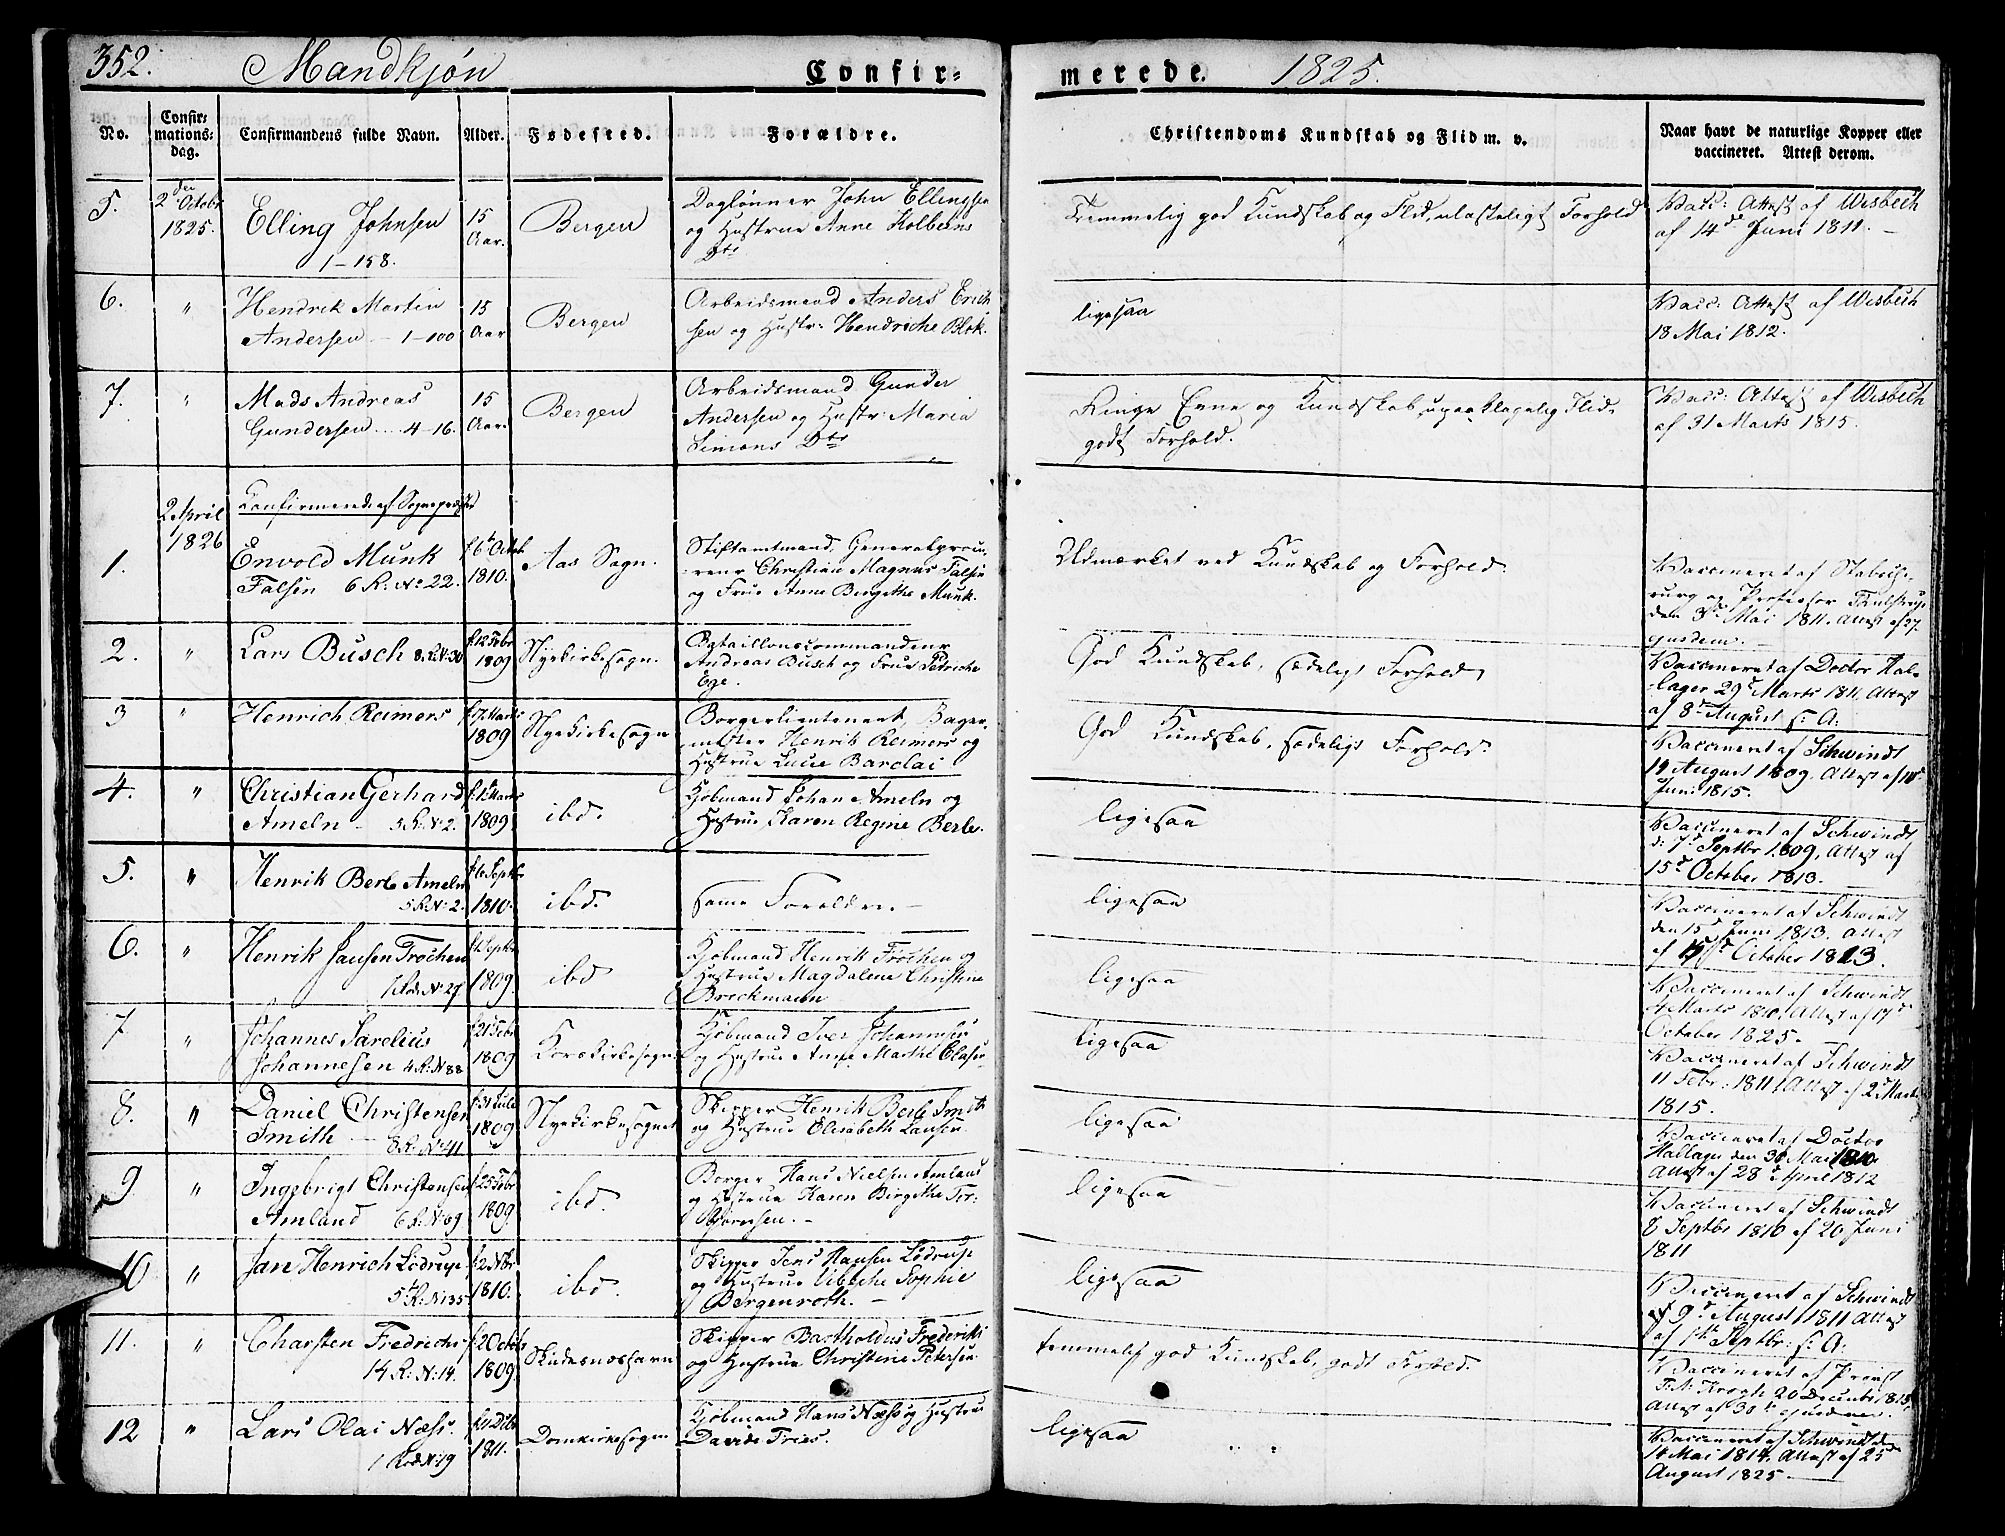 352. Mandkjøn Confir= merede. 1825.
No.
Confir=
mations=
dag.
Confirmandens fulde Navn.
Alder.
Fødested.
Forældre.
Christendoms Kundskab og Flid m. v.
Naar havt de naturlige Kopper eller
vaccineret. Attest derom.
5.
2den Octobr
1825.
Elling Johnsen
1-158.
15
Aar.
Bergen
Daglønner John Ellingsen
og Hustrue Anne Kolbeens
Dtr
Temmelig god Kundskab og Flid, ulasteligt Forhold
Vacc: Attest af Wisbech
af 14de Juni 1811. -
6.
"
Hendrik Martin
Andersen - 1-100
15
Aar
Bergen
Arbeidsmand Anders Erich
sen og Hustr: Hendriche Blok.
ligesaa
Vacc: Attest af Wisbech
18 Mai 1812.
7.
"
Mads Andreas
Gundersen 4-16.
15
Aar.
Bergen
Arbeidsmand Gunder
Andersen og Hustr: Maria
Simons Dtr
Ringe Evne og Kundskab, upaaklagelig Flid,
godt Forhold.
Vacc: Attest af Wisbech
af 31 Marts 1815.
2 April
1826
Confirmerede af Sognepræsten
1.
Envold Munk
Falsen 6 R: No 22.
f. 6te Octob
1810.
Aas Sogn.
Stiftamtmand, Generalprocu-
reur Christian Magnus Falsen
og Frue Anne Birgithe Munk.
Udmærket ved Kundskab og Forhold.
Vaccineret af Stabschi-
rurg og Professor Thulstrup
den 3die Mai 1811. Attest af 27
ejusdem.
2.
"
Lars Busch 8. R: N: 30
f. 12 Febr
1809
Nyekirkesogn.
Bataillonscommandeur
Andreas Busch og Frue Petriche
Ege.
God Kundskab, sædeligt Forhold,
Vaccineret af Doctor Hal-
lager 29de Marts 1811, Attest
af 8de August s: A:
3
"
Henrich Reimers
f. 17 Marts
1809
Nyekirkesogn
Borgerlieutenant, Bager-
mester Henrik Reimers og
Hustrue Lucie Barclai
God Kundskab, sædeligt Forhold.
Vaccineret af Schwindt
19 August 1809, Attest af 10de
Juni 1815.
4.
"
Christian Gerhard
Ameln - 5 R: N: 2.
1809
ibd.
Kjøbmand Johan Ameln og
Hustrue Karen Regine Berle.
ligesaa
Vaccineret af Schwindt
d: 7de Septbr 1809, Attest af
15de October 1813.
5.
"
Henrik Berle Ameln
5 R: N: 2.
f. 6 Septbr
1810.
ibd.
samme Forældre. -
ligesaa
Vaccineret af Schwindt
den 15de Juni 1813. Attest
af 15de October 1813.
6.
"
Henrik Jansen Frøchen
1 Rode N: 27
1809
ibd
Kjøbmand Henrik Frøchen og
Hustrue Magdalene Christine
Brockmann
ligesaa
Vaccineret af Schwindt
4 Marts 1810, Attest af 17de
October 1825.
7
"
Johannes Sarelius
Johannesen 4 R: N 88
f. 21 Febr
1809
Korskirkesogn
Kjøbmand Iver Johannesen
og Hustrue Anne Marthe Olsen
ligesaa
Vaccineret af Schwindt
11 Febr: 1811, Attest af 2de Marts
1815.
8.
"
Daniel Christensen
Smith 8 R: N: 41
f. 31 Julii
1809
Nyekirkesognet
Skipper Henrik Berle Smith
og Hustrue Elisabeth Lausen.
ligesaa
Vaccineret af Doctor
Hallager den 30 Mai 1810.
Attest af 28de April 1812
9.
"
Ingebrigt Christensen
Amland 6 R: N: 69
f. 25 Febr
1809.
ibd.
Borger Hans Nielsen Amland
og Hustrue Karen Birgithe Tor-
bjørnsen. -
ligesaa
Vaccineret af Schwindt
8 Septbr 1810 af 20 Juni
1811
10
"
Jan Henrich Lødrup
5te R: N: 135
f. 2 Nbr
1810.
ibd.
Skipper Jens Hansen Lødrup
og Hustrue Vibeche Sophie
Bergenroth. -
ligesaa
Vaccineret af Schwindt
af 9de August 1811 Attest
af 1ste Septbr: s: A:
11.
"
Charsten Fredrichs
14 R: N: 14.
f. 20 Octob
1809
Skudesnæshavn
Skipper Bartholdus Frederiks
og Hustrue Christine Petersen
temmelig god Kundskab, godt Forhold.
Vaccineret af Provst
Fr: Krogh 20 December 1813,
Attest af 30te ejusdem.
12
"
Lars Olai Næss.
1 Rode N: 19
1811.
Domkirkesogn
Kjøbmand Hans Næss og Hustrue
Davide Fries.
ligesaa
Vaccineret af Schwindt den
14 Mai 1814, Attest af 25
August 1825.